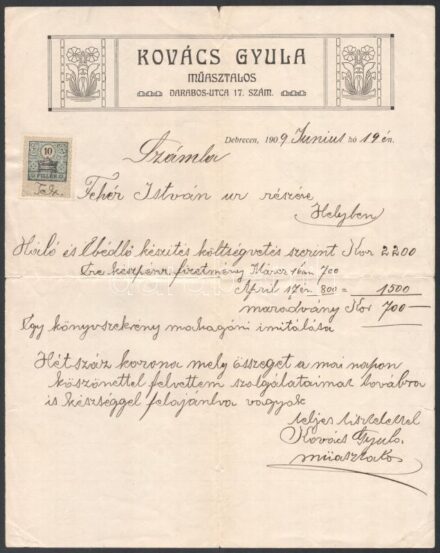 KOVÁCS GYULA
MŰASZTALOS
DARABOS-UTCA 17. SZÁM.
Debrecen, 1909 Junius hó 19 én
10
FILLÉR
Számla
Fehér István ur részére
Helyben
Háló és Ebédlő készités költségvetés szerint Kor 2200
Ere készpénz fizetmény Márcz 16án 700
April 17én 800 = 1500
maradvány Kor 700
Egy könyvszekrény mahagóni imitálása
Hétszáz korona mely összeget a mai napon
köszönettel felvettem szolgálataimat tovabra
is készséggel felajánlva vagyok
teljes tisztelettel
Kovács Gyula
műasztalos